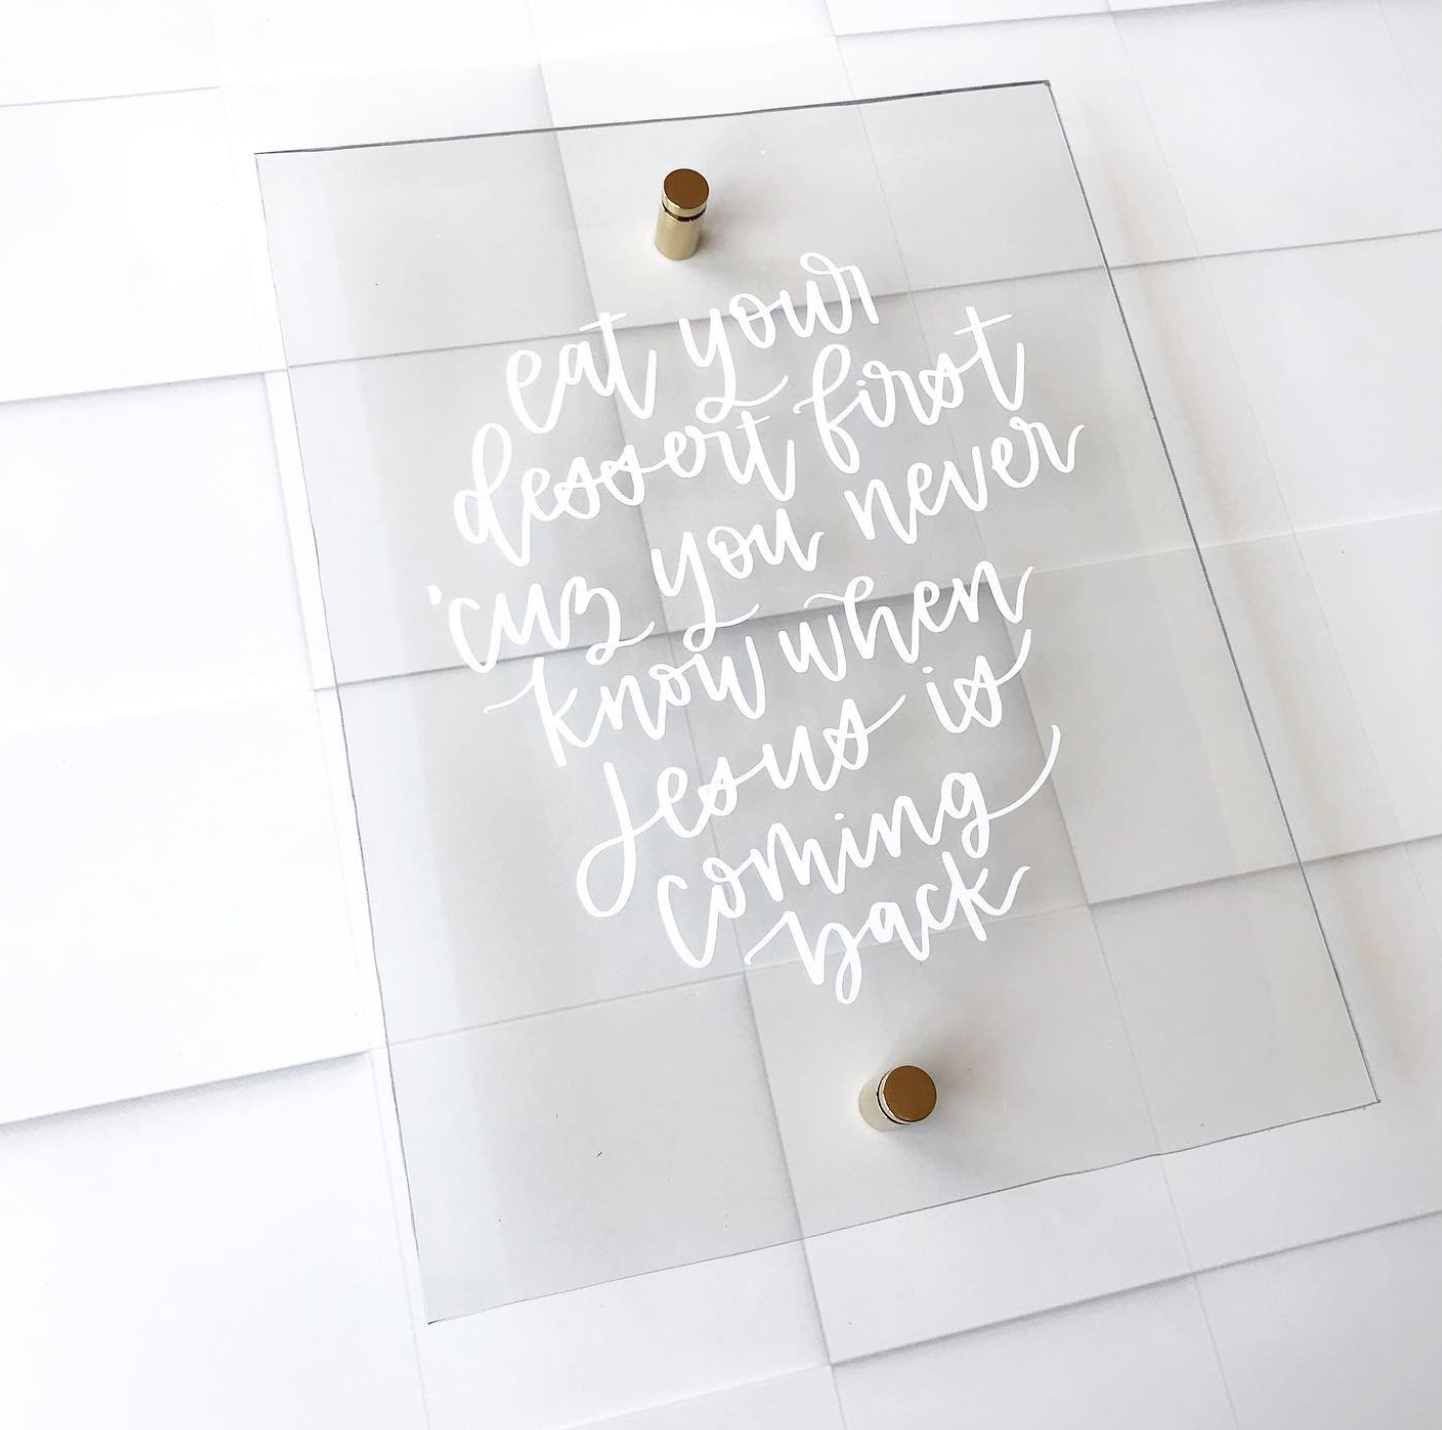 eat your
dessert first
'cuz you never
know when
Jesus is
coming
back